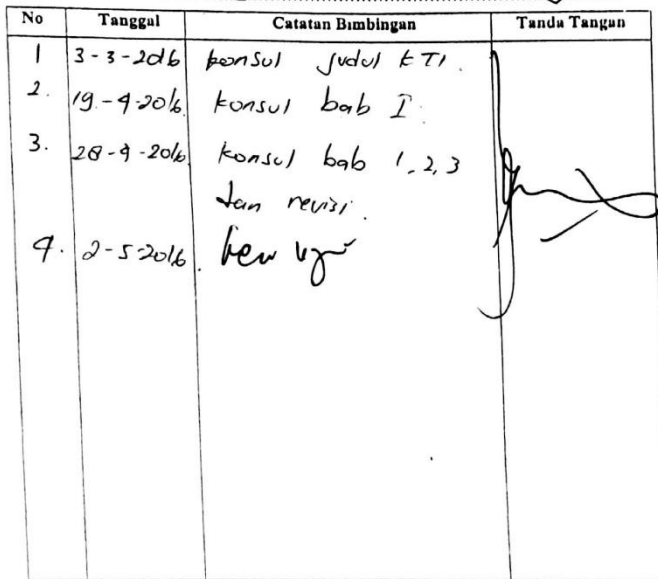 No Tanggal Catatan Bimbingan Tanda Tangan
1 3-3-2016 konsul judul KTI.
2. 19-4-2016 konsul bab I.
3. 28-4-2016 konsul bab 1,2,3
dan revisi.
4. 2-5-2016.